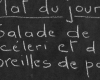 Plat du jour
Salade de
céleri et d
oreilles de